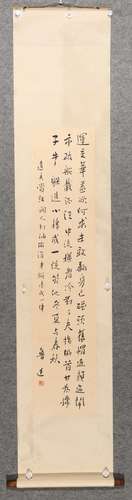 運交華蓋欲何求未敢翻身已碰頭舊帽遮顏過鬧
市破船載酒泛中流橫眉冷對千夫指俯首甘為孺
子牛躲進小樓成一統管他冬夏與春秋
達夫賞飯閒人打油偷得半聯湊成一律
魯迅